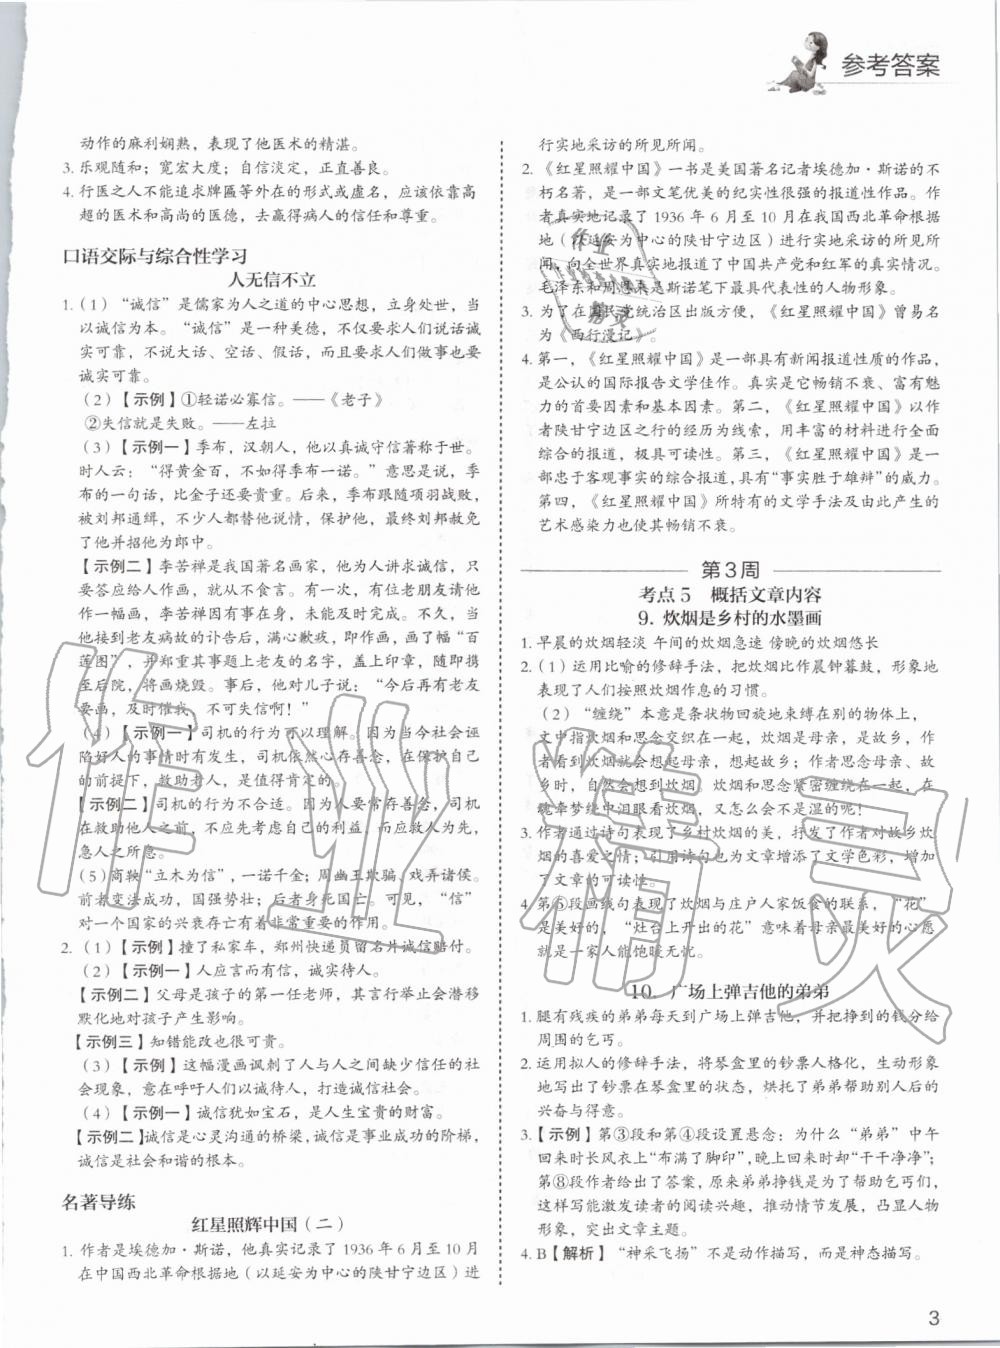 参考答案
动作的麻利娴熟，表现了他医术的精湛。
3. 乐观随和；宽宏大度；自信淡定，正直善良。
4. 行医之人不能追求牌匾等外在的形式或虚名，应该依靠高
超的医术和高尚的医德，去赢得病人的信任和尊重。
口语交际与综合性学习
人无信不立
1.（1）“诚信”是儒家为人之道的中心思想，立身处世，当
以诚信为本。“诚信”是一种美德，不仅要求人们说话诚
实可靠，不说大话、空话、假话，而且要求人们做事也要
诚实可靠。
（2）【示例】①轻诺必寡信。——《老子》
②失信就是失败。——左拉
（3）【示例一】季布，汉朝人，他以真诚守信著称于世。
时人云：“得黄金百，不如得季布一诺。”意思是说，季
布的一句话，比金子还要贵重。后来，季布跟随项羽战败，
被刘邦通缉，不少人都替他说情，保护他，最终刘邦赦免
了他并招他为郎中。
【示例二】李苦禅是我国著名画家，他为人讲求诚信，只
要答应给人作画，就从不食言。有一次，有位老朋友请他
作一幅画，李苦禅因有事在身，未能及时完成。不久，当
他接到老友病故的讣告后，满心歉疚，即作画，画了幅“百
莲图”，并郑重其事题上老友的名字，盖上印章，随即携
至后院，将画烧毁。事后，他对儿子说：“今后再有老友
要画，及时催我，不可失信啊！”
（4）【示例一】司机的行为可以理解。因为当今社会诬
陷好人的事情时有发生，司机依然心存善念，在保护自己
的前提下，救助老人，是值得肯定的。
【示例二】司机的行为不合适。因为人要常存善念，司机
在救助他人之前，不应先考虑自己的利益，而应救人为先，
急人之所急。
（5）商鞅“立木为信”，一诺千金；周幽王欺骗、戏弄诸侯。
前者变法成功，国强势壮；后者身死国亡。可见，“信”
对一个国家的兴衰存亡有着非常重要的作用。
2.（1）【示例】撞了私家车，郑州快递员留名片诚信赔付。
（2）【示例一】人应言而有信，诚实待人。
【示例二】父母是孩子的第一任老师，其言行举止会潜移
默化地对孩子产生影响。
【示例三】知错能改也很可贵。
（3）【示例】这幅漫画讽刺了人与人之间缺少信任的社
会现象，意在呼吁人们以诚待人，打造诚信社会。
（4）【示例一】诚信犹如宝石，是人生宝贵的财富。
【示例二】诚信是心灵沟通的桥梁，诚信是事业成功的阶梯，
诚信是社会和谐的根本。
名著导练
红星照辉中国（二）
1. 作者是埃德加·斯诺，他真实记录了1936年6月至10月
在中国西北革命根据地（以延安为中心的陕甘宁边区）进
行实地采访的所见所闻。
2. 《红星照耀中国》一书是美国著名记者埃德加·斯诺的不
朽名著，是一部文笔优美的纪实性很强的报道性作品。作
者真实地记录了1936年6月至10月在我国西北革命根据
地（以延安为中心的陕甘宁边区）进行实地采访的所见所
闻，向全世界真实报道了中国共产党和红军的真实情况。
毛泽东和周恩来是斯诺笔下最具代表性的人物形象。
3. 为了在国民党统治区出版方便，《红星照耀中国》曾易名
为《西行漫记》。
4. 第一，《红星照耀中国》是一部具有新闻报道性质的作品，
是公认的国际报告文学佳作。真实是它畅销不衰、富有魅
力的首要因素和基本因素。第二，《红星照耀中国》以作
者陕甘宁边区之行的经历为线索，用丰富的材料进行全面
综合的报道，极具可读性。第三，《红星照耀中国》是一
部忠于客观事实的综合报道，具有“事实胜于雄辩”的威力。
第四，《红星照耀中国》所特有的文学手法及由此产生的
艺术感染力也使其畅销不衰。
第3周
考点5 概括文章内容
9. 炊烟是乡村的水墨画
1. 早晨的炊烟轻淡 午间的炊烟急速 傍晚的炊烟悠长
2.（1）运用比喻的修辞手法，把炊烟比作晨钟暮鼓，形象地
表现了人们按照炊烟作息的习惯。
（2）“缠绕”本意是条状物回旋地束缚在别的物体上，
文中指炊烟和思念交织在一起，炊烟是母亲，是故乡，作
者看到炊烟就会想起母亲，想起故乡。作者思念母亲、故
乡时，自然会想到炊烟，炊烟和思念紧密缠绕在一起，在
魂牵梦绕中泪眼看炊烟，又怎么会不是湿的呢！
3. 作者通过诗句表现了乡村炊烟的美，抒发了作者对故乡炊
烟的喜爱之情；引用诗句为文章增添了文学色彩，增加了
文章的可读性。
4. 第⑥段画线句表现了炊烟与庄户人家饭食的联系，“花”
是美好的，“灶台上开出的花”意味着母亲最美好的心愿
就是一家人能饱暖无忧。
10. 广场上弹吉他的弟弟
1. 腿有残疾的弟弟每天到广场上弹吉他，并把挣到的钱分给
周围的乞丐。
2. 运用拟人的修辞手法，将琴盒里的钞票人格化，生动形象
地写出了钞票在琴盒里的状态，烘托了弟弟帮助别人后的
兴奋与得意。
3.【示例】第③段和第④段设置悬念：为什么“弟弟”中午
回来时长风衣上“布满了脚印”，晚上回来时却“干干净净”；
第⑧段作者给出了答案，原来弟弟是为了帮助乞丐们，
这样写能激发读者的阅读兴趣，推动情节发展，凸显人物
形象，突出文章主题。
4. B【解析】“神采飞扬”不是动作描写，而是神态描写。
3
作业精灵